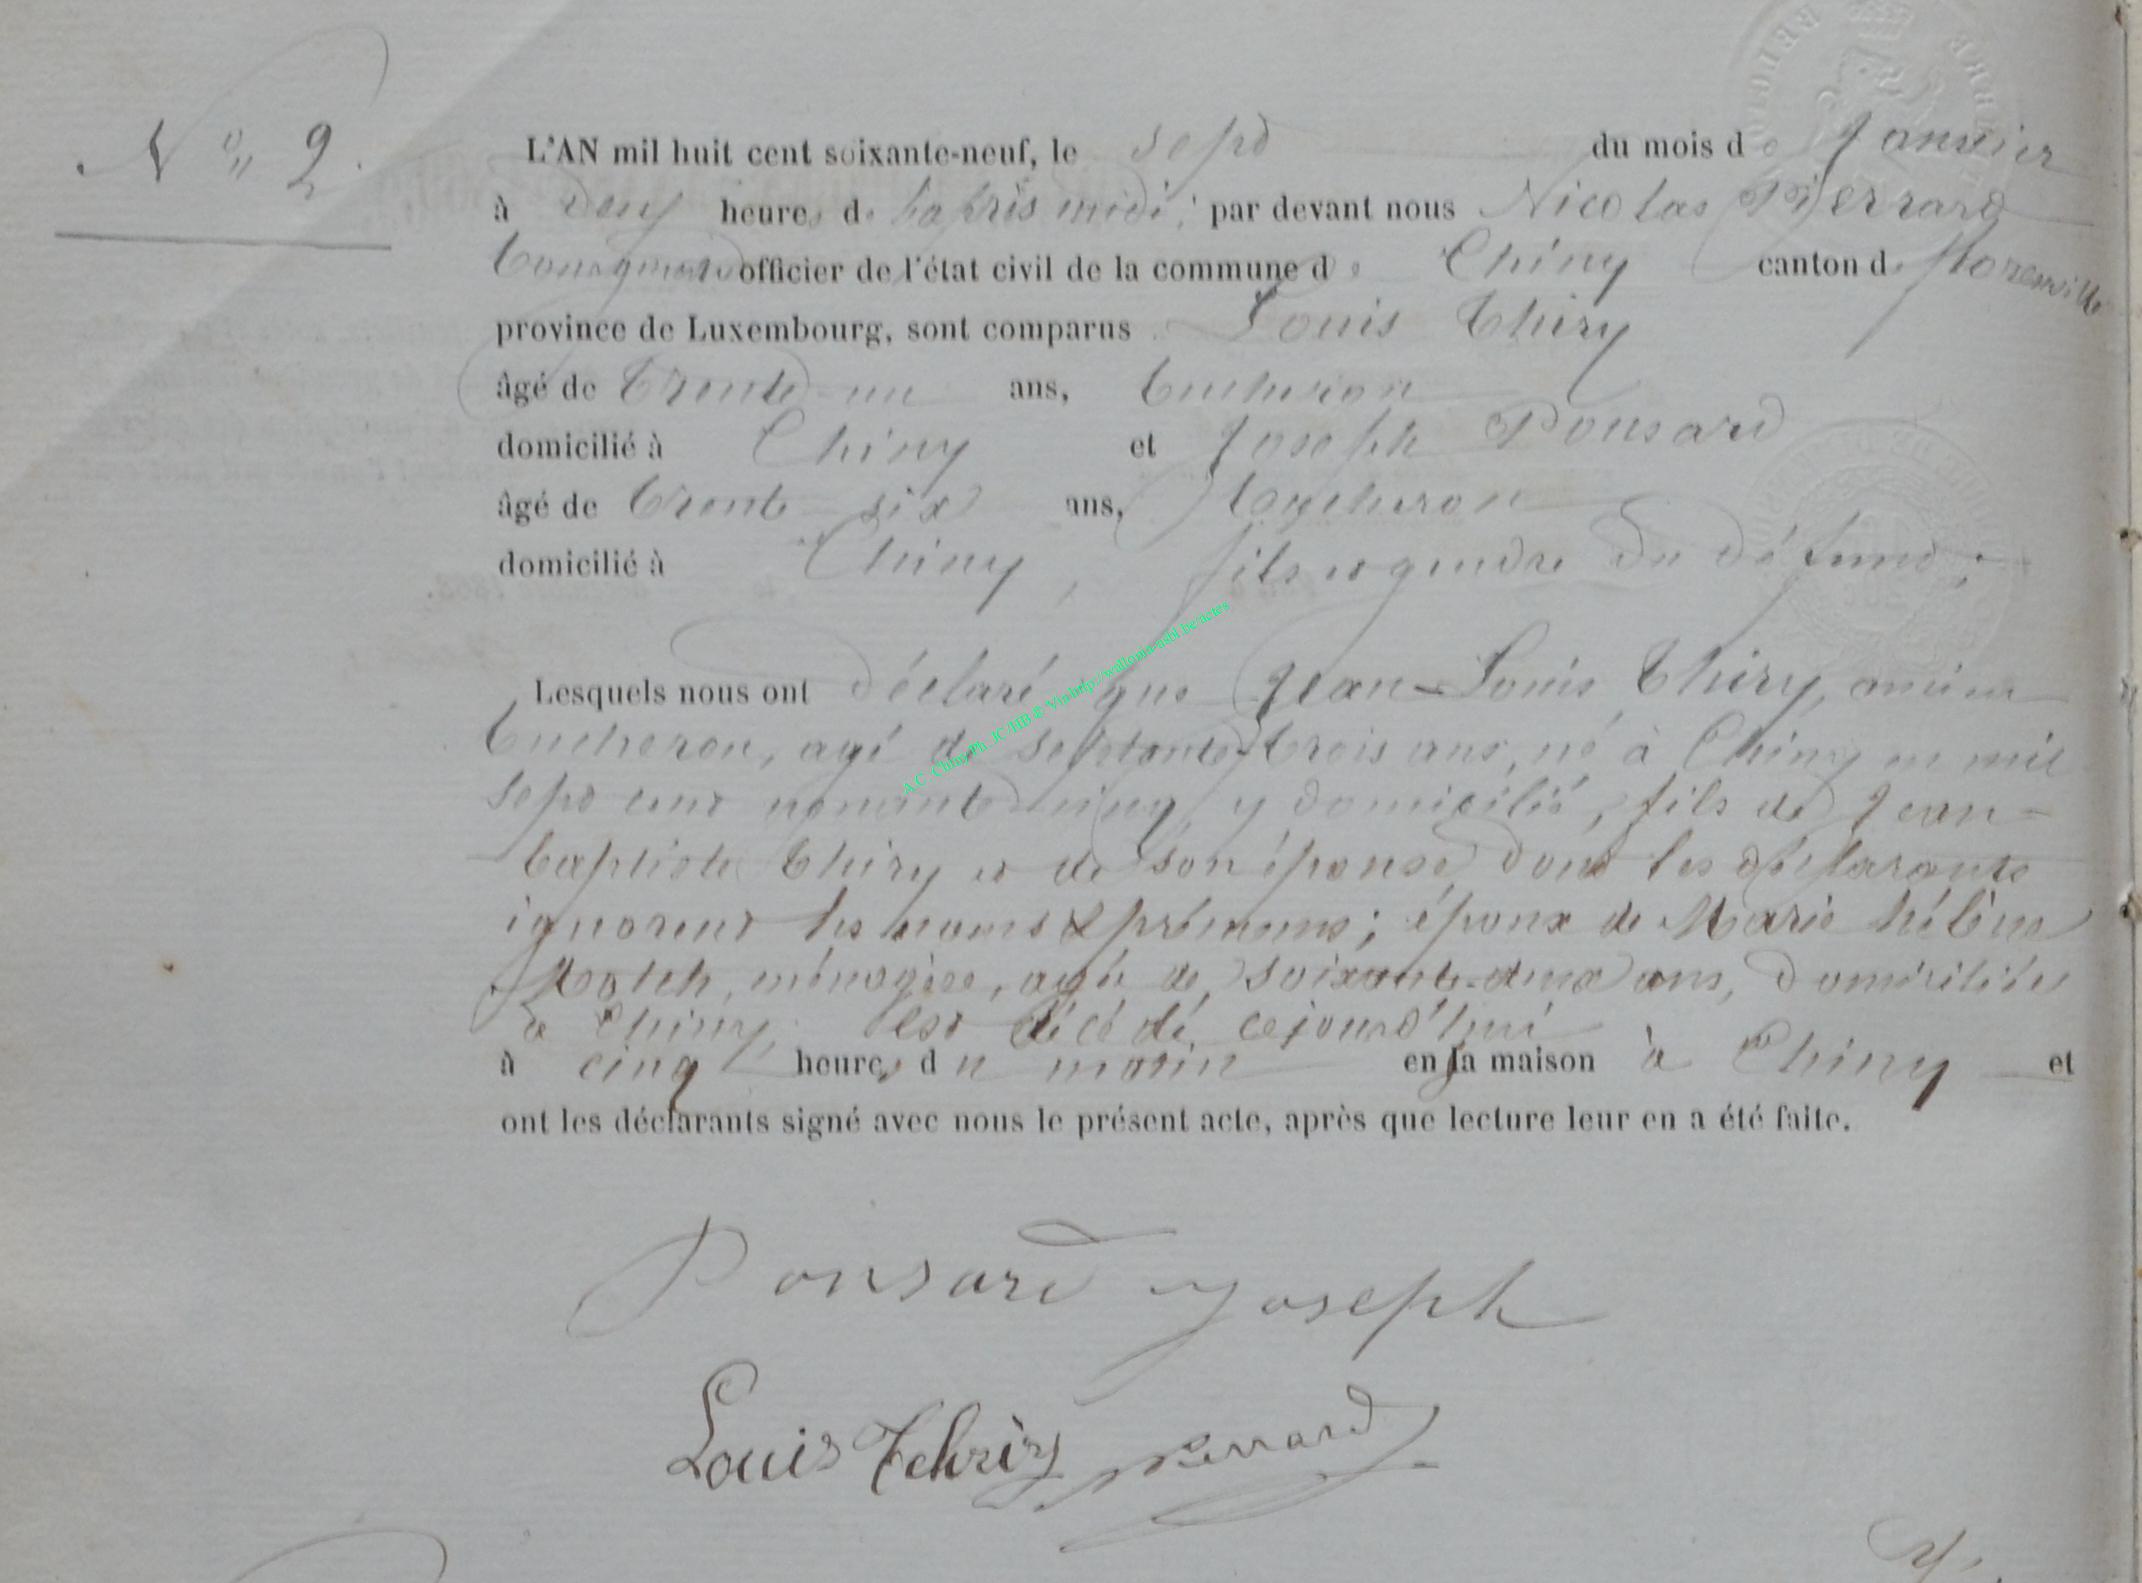 N° 2.
L'AN mil huit cent soixante-neuf, le sept du mois de Janvier
à deux heures de l'après midi, par devant nous Nicolas Pierrard
bourgmestre officier de l'état civil de la commune de Chiny canton de Florenville
province de Luxembourg, sont comparus Louis Thiry
âgé de trente-un ans, bucheron
domicilié à Chiny et Joseph Ponsard
âgé de trente-six ans, bucheron
domicilié à Chiny, fils et gendre du défunt;
Lesquels nous ont déclaré que Jean-Louis Thiry, ancien
bucheron, agé de septante-trois ans, né à Chiny en mil
sept cent nonante-cinq, y domicilié, fils de Jean-
baptiste Thiry et de son épouse dont les déclarants
ignorent les noms & prénoms; époux de Marie hélène
ménagère, agée de soixante-deux ans, domiciliée
à Chiny, est décédé cejourd'hui
à cinq heures du matin en sa maison à Chiny et
ont les déclarants signé avec nous le présent acte, après que lecture leur en a été faite.
Ponsard Joseph
Louis Tehriy Pierrard
A.C. Chiny/Ph. JC/HB © Via http://wallonia-asbl.be/actes